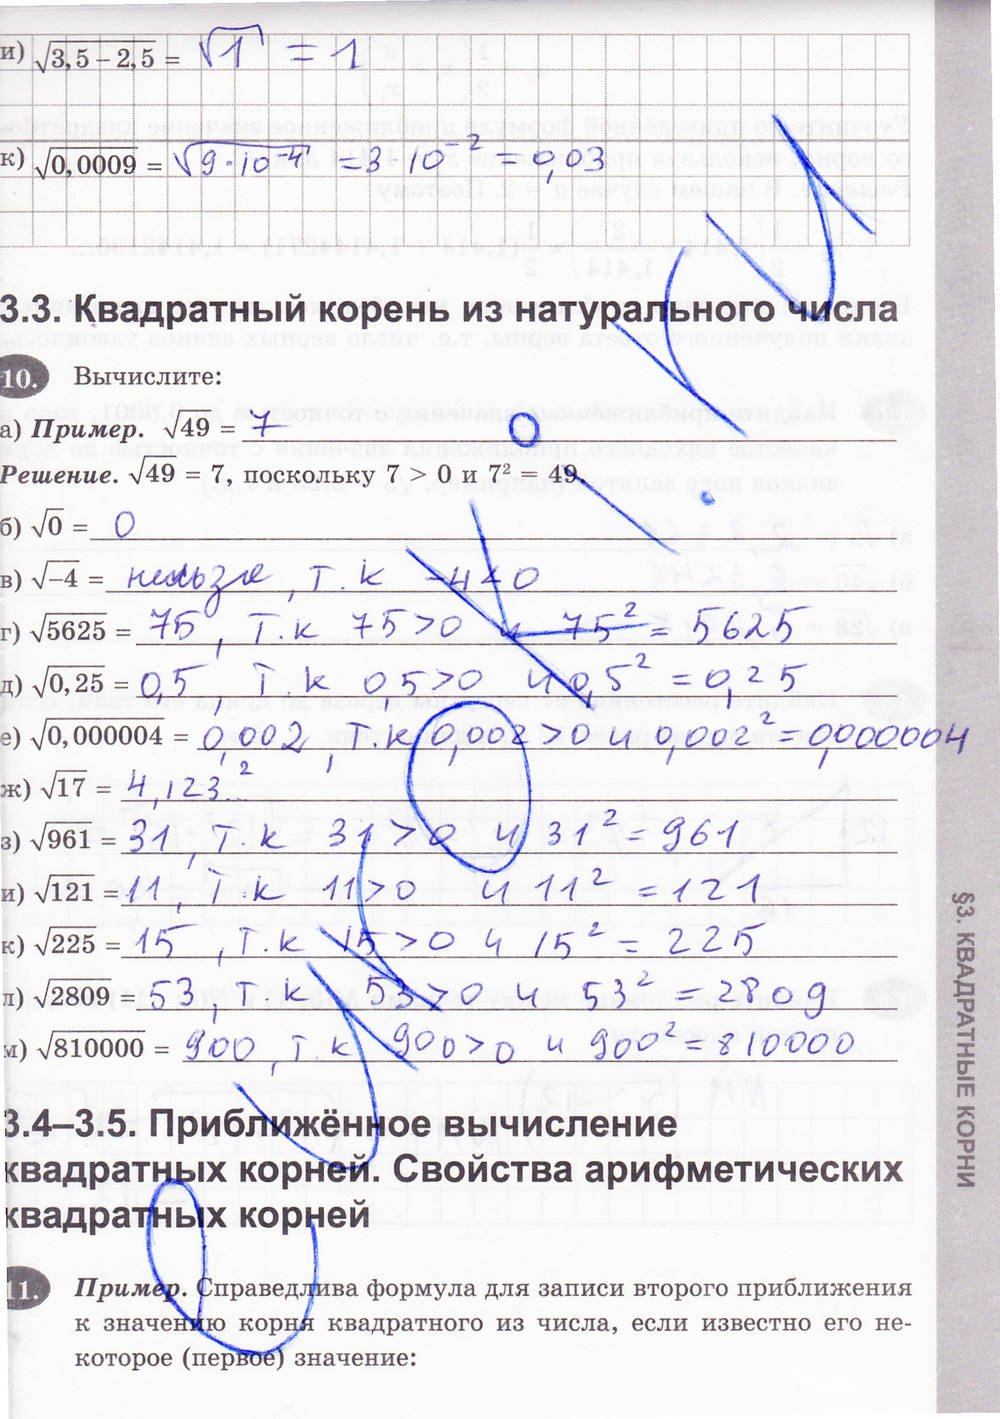 и) √3,5 – 2,5 = √1 = 1
к) √0,0009 = √9·10⁻⁴ = 3·10⁻² = 0,03
3.3. Квадратный корень из натурального числа
10. Вычислите:
а) Пример. √49 = 7
Решение. √49 = 7, поскольку 7 > 0 и 7² = 49.
б) √0 = 0
в) √–4 = нельзя, т.к -4<0
г) √5625 = 75, т.к 75>0 и 75² = 5625
д) √0,25 = 0,5, т к 0,5>0 и 0,5² = 0,25
е) √0,000004 = 0,002, т.к 0,002>0 и 0,002² = 0,000004
ж) √17 = 4,123...²
з) √961 = 31, т.к 31>0 и 31² = 961
и) √121 = 11, т.к 11>0 и 11² = 121
к) √225 = 15, т.к 15>0 и 15² = 225
л) √2809 = 53, т к 53>0 и 53² = 2809
м) √810000 = 900, т.к 900>0 и 900² = 810000
§3. КВАДРАТНЫЕ КОРНИ
3.4–3.5. Приближённое вычисление
квадратных корней. Свойства арифметических
квадратных корней
11. Пример. Справедлива формула для записи второго приближения
к значению корня квадратного из числа, если известно его не-
которое (первое) значение: